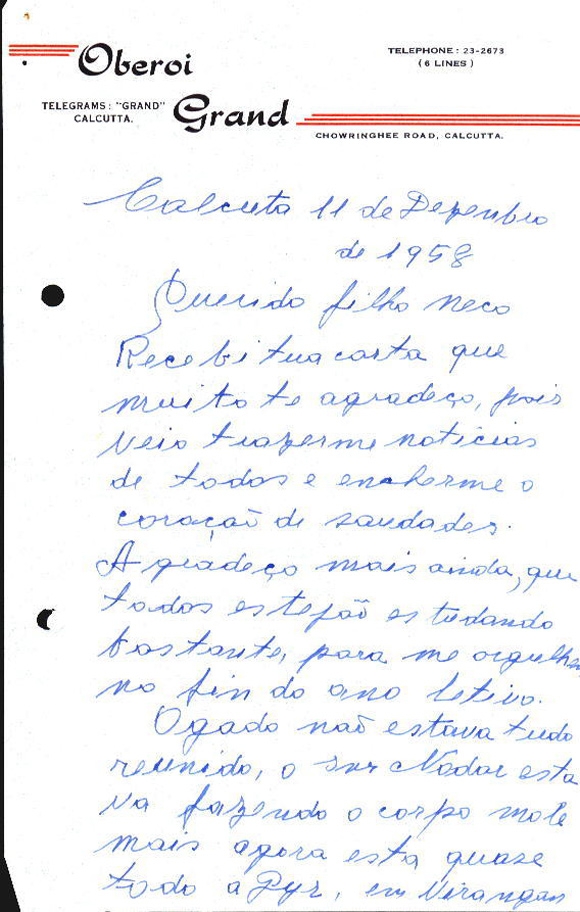 Oberoi
Grand
TELEPHONE : 23-2673
( 6 LINES )
TELEGRAMS : "GRAND"
CALCUTTA.
CHOWRINGHEE ROAD, CALCUTTA.
Calcuta 11 de Dezenbro
de 1958
Querido filho Neco
Recebi tua carta que
muito te agradeço, pois
veio trazerme noticias
de todos e encherme o
coração de saudades.
Agradeço mais ainda, que
todos estejão estudando
bastante, para me orgulhar
no fin do ano letivo.
O gado naõ estava tudo
reunido, o snr Nadar esta
va fazendo o corpo mole
mais agora esta quase
todo a Pyr, em Virangan